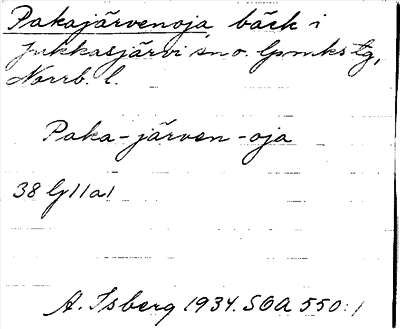 Pakajärvenoja, bäck i
Jukkasjärvi sn o. lpmkstg,
Norrb. l.
Paka-järven-oja
38 G11a1
A. Isberg 1934. SOA 550:1